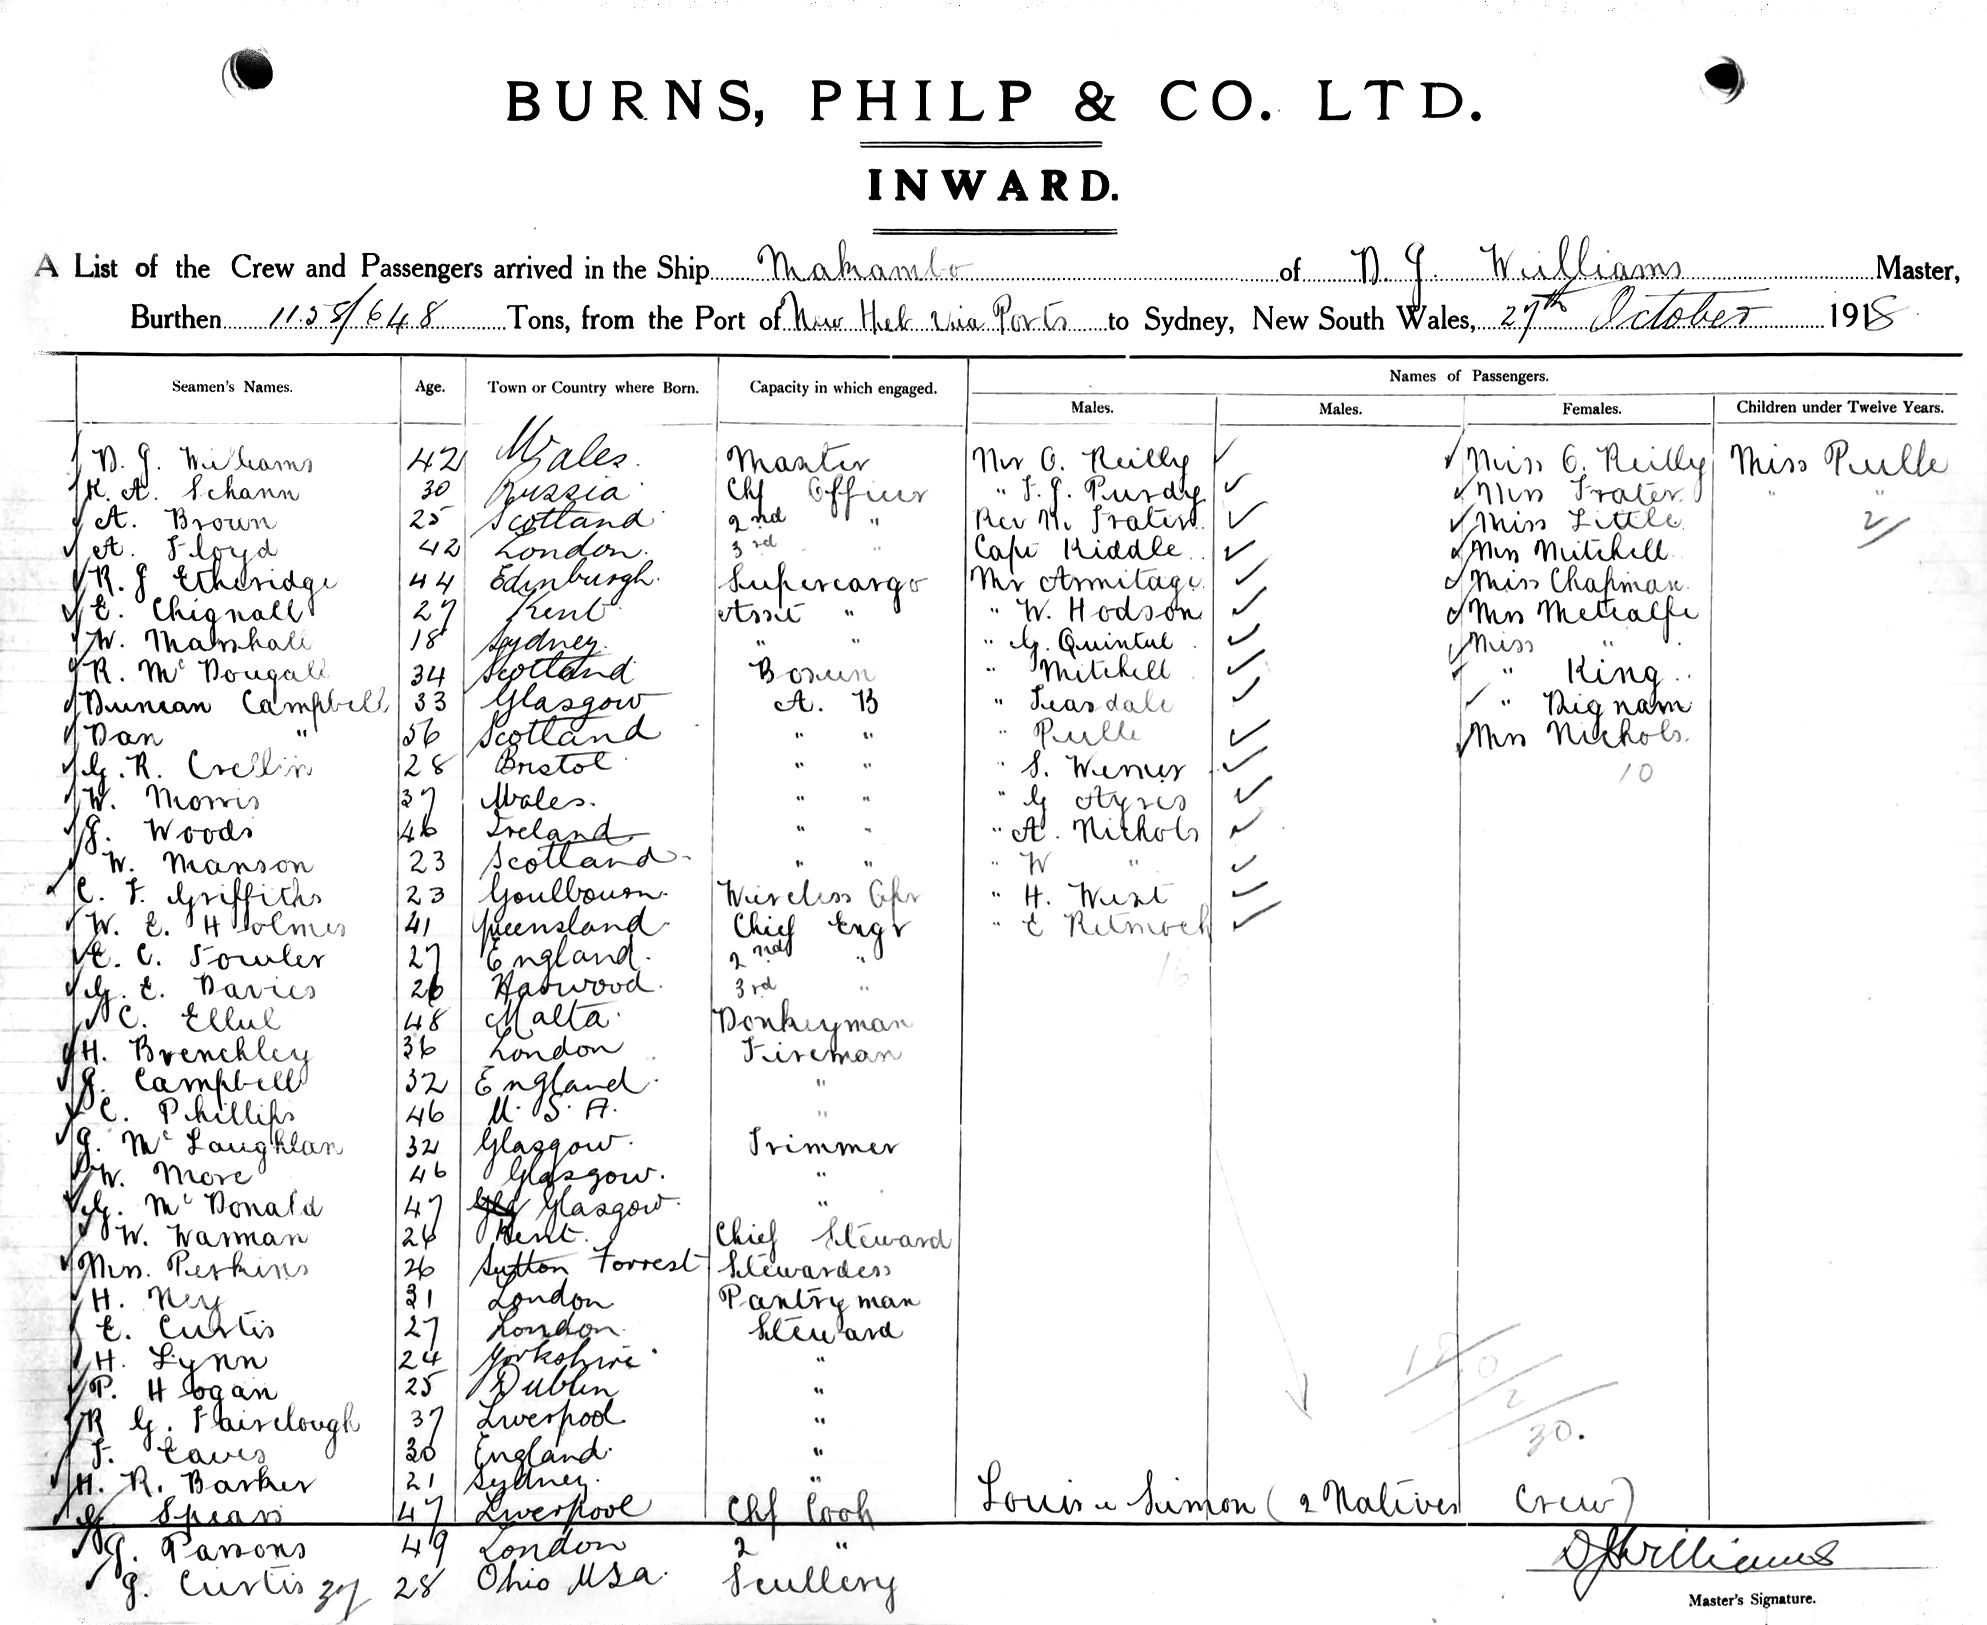 BURNS, PHILP & CO. LTD.
INWARD.
A List of the Crew and Passengers arrived in the Ship Makambo of D. J. Williams Master,
Burthen 1158/648 Tons, from the Port of New Heb via Ports to Sydney, New South Wales, 27th October 1918
Seamen's Names. Age. Town or Country where Born. Capacity in which engaged. Names of Passengers.
Males. Males. Females. Children under Twelve Years.
D. J. Williams 42 Wales. Master Mr O. Reilly Miss O. Reilly Miss Pulle
K. A. Schann 30 Russia Chf Officer " F. J. Purdy Mrs Frater " "
A. Brown 25 Scotland 2nd " Rev M. Frater Miss Little 2/
A. Floyd 42 London. 3rd " Capt Kiddle Mrs Mitchell
R. J Etheridge 44 Edinburgh. Supercargo Mr Armitage Miss Chapman
E. Chignall 27 Kent Asst " " W. Hodson Mrs Metcalfe
W. Marshall 18 Sydney. " " " G. Quintal Miss "
R. McDougall 34 Scotland Bosun " Mitchell " King
Duncan Campbell 33 Glasgow A. B " Teasdale " Dignam
Dan " 56 Scotland " " " Pulle Mrs Nichols.
G. R. Crellin 28 Bristol " " " S. Werner 10
W. Morris 37 Wales. " " " G Ayres
J. Woods 46 Ireland " " " A. Nichols
W. Manson 23 Scotland " " " W "
C. F. Griffiths 23 Goulbourn. Wireless Opr " H. West
W. E. Holmes 41 Queensland Chief Engr " E
E. C. Fowler 27 England. 2nd " 16
G. E. Davies 26 Harwood. 3rd "
C. Ellul 48 Malta Donkeyman
H. Brenchley 36 London Fireman
J. Campbell 32 England "
C. Phillips 46 U. S. A. "
J. McLaughlan 32 Glasgow. Trimmer
W. More 46 Glasgow. "
G. McDonald 47 Glasgow. "
W. Warman 26 Kent. Chief Steward
Mrs. Perkins 26 Sutton Forrest Stewardess
H. Ney 31 London Pantryman
E. Curtis 27 London. Steward
H. Lynn 24 Yorkshire "
P. Hogan 25 Dublin "
R G. Fairclough 37 Liverpool "
F. Eaves 30 England. " 30.
H. R. Barker 21 Sydney. "
G. Spears 47 Liverpool Chf Cook Louis & Simon (2 Natives Crew)
J. Parsons 49 London 2 " D J Williams
J. Curtis 37 28 Ohio USA. Scullery
Master's Signature.